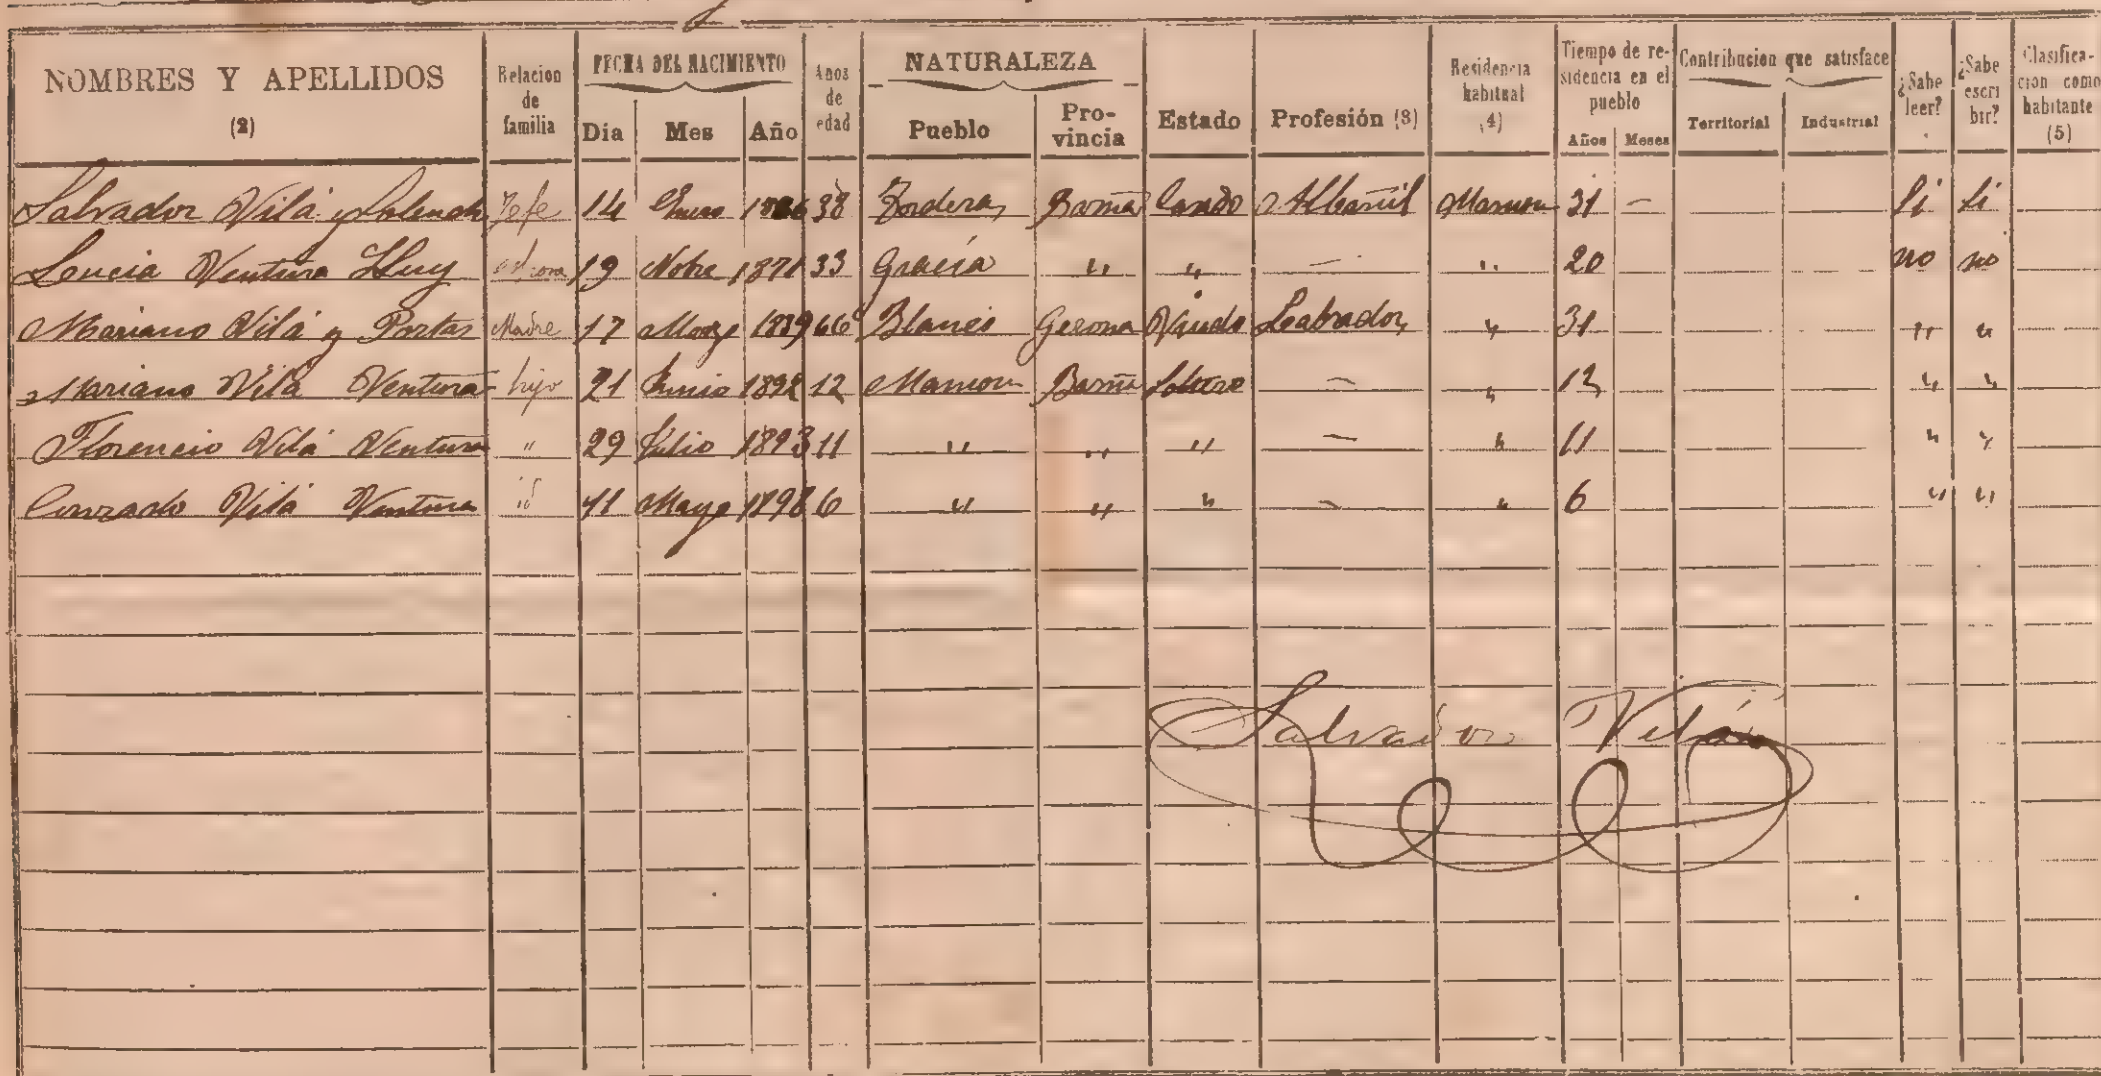 NOMBRES Y APELLIDOS (2) Relacion de familia FECHA DEL NACIMIENTO Dia Mes Año Años de edad NATURALEZA Pueblo Provincia Estado Profesión (3) Residencia habitual (4) Tiempo de residencia en el pueblo Años Meses Contribucion que satisface Territorial Industrial ¿Sabe leer? ¿Sabe escribir? Clasificacion como habitante (5)
Salvador Vilá y Jefe 14 Enero 38 Barna Casado Albañil 31 — Si Si
Lucia Ventura esposa 19 Nobre 1871 33 Gracia " " — " 20 no no
Mariano Vilá y Portas Madre 17 1839 66 Blanes Gerona Viudo Labrador " 31 " "
Mariano Vilá Ventura hijo 21 Junio 1892 12 Barna Soltero — " 12 " "
Florencio Vilá Ventura " 29 Julio 1893 11 " " " — " 11 " "
Conrado Vilá Ventura id 11 Mayo 1898 6 " " " — " 6 " "
Salvador Vilá